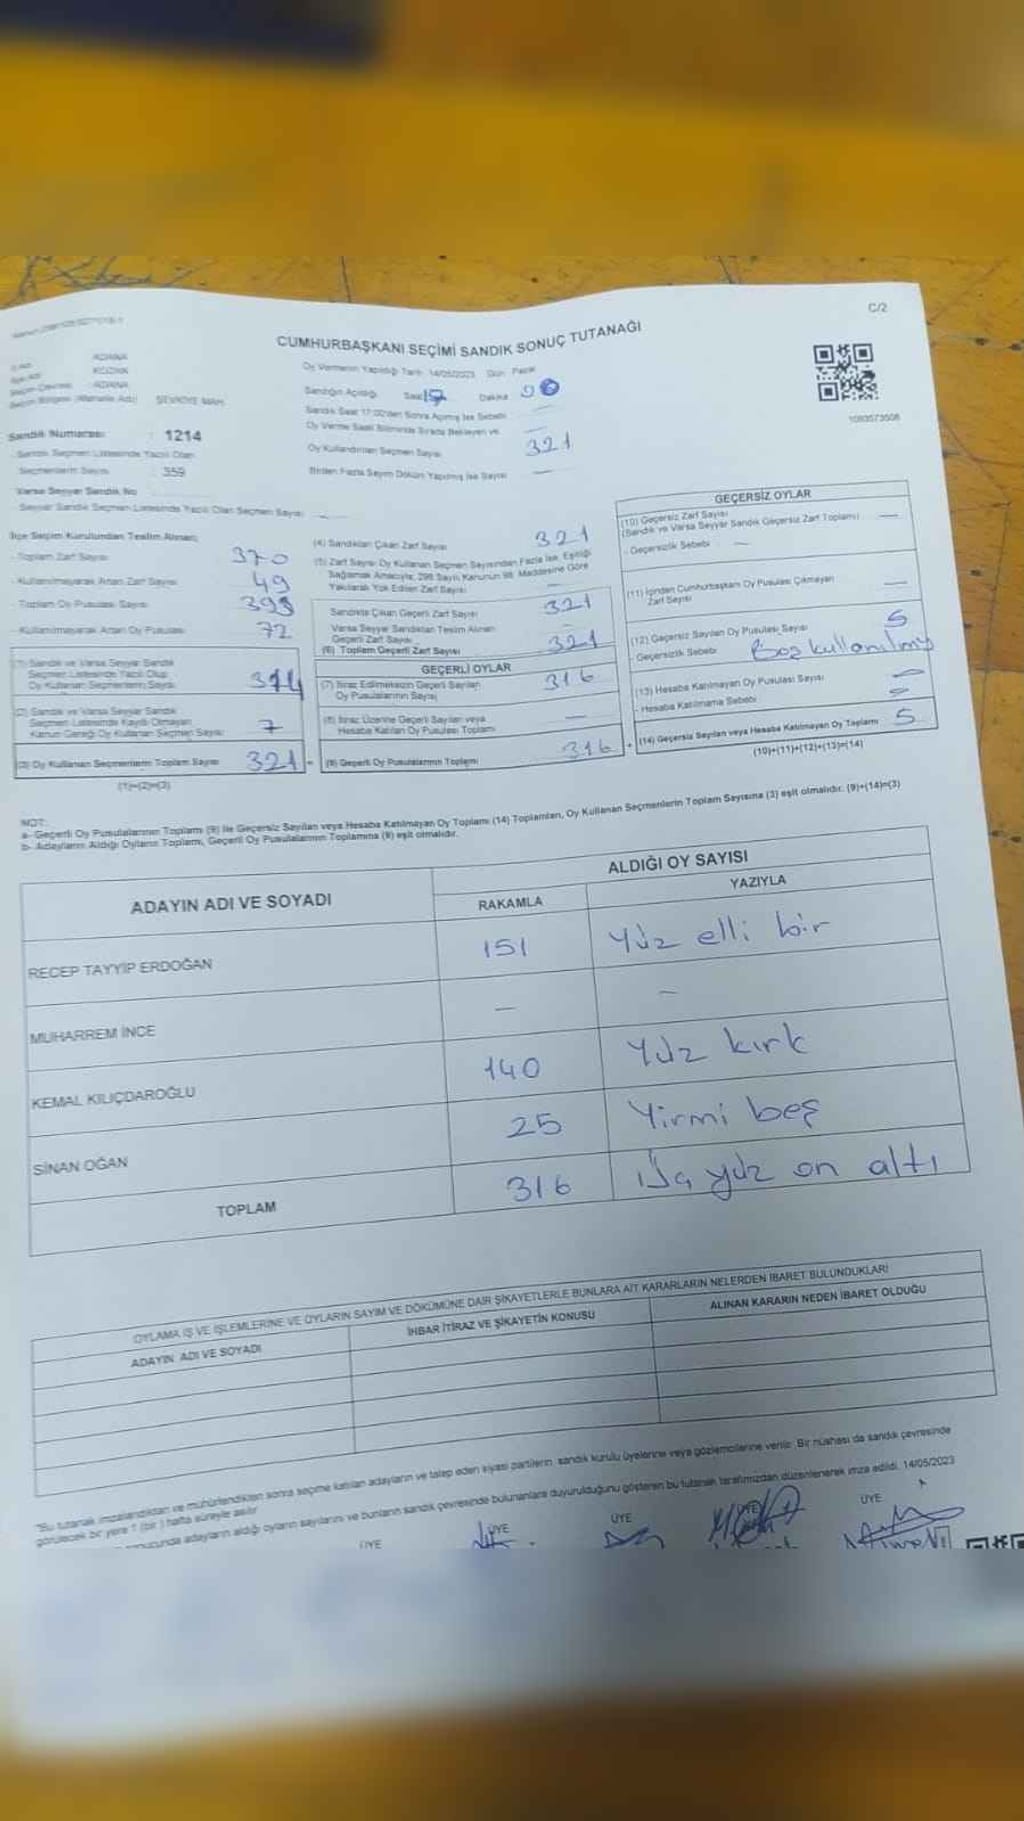 C/2
CUMHURBAŞKANI SEÇİMİ SANDIK SONUÇ TUTANAĞI
Oy Vermenin Yapıldığı Tarih: 14/05/2023 Gün: Pazar
ADANA
KOZAN
ADANA
Sandığın Açıldığı Saat 17 Dakika
Sandık Saat 17:00'den Sonra Açılmış İse Sebebi
Oy Verme Saati Bitiminde Sırada Bekleyen ve
Oy Kullandırılan Seçmen Sayısı 321
Birden Fazla Sayım Döküm Yapılmış İse Sayısı —
1093573508
Sandık Numarası : 1214
Sandık Seçmen Listesinde Yazılı Olan
Seçmenlerin Sayısı : 359
Varsa Seyyar Sandık No
Seyyar Sandık Seçmen Listesinde Yazılı Olan Seçmen Sayısı
İlçe Seçim Kurulundan Teslim Alınan;
- Toplam Zarf Sayısı 370
- Kullanılmayarak Artan Zarf Sayısı 49
- Toplam Oy Pusulası Sayısı 393
- Kullanılmayarak Artan Oy Pusulası 72
(1) Sandık ve Varsa Seyyar Sandık
Seçmen Listesinde Yazılı Olup
Oy Kullanan Seçmenlerin Sayısı 314
(2) Sandık ve Varsa Seyyar Sandık
Seçmen Listesinde Kaydı Olmayan
Kanun Gereği Oy Kullanan Seçmen Sayısı 7
(3) Oy Kullanan Seçmenlerin Toplam Sayısı 321
(1)+(2)=(3)
(4) Sandıktan Çıkan Zarf Sayısı 321
(5) Zarf Sayısı Oy Kullanan Seçmen Sayısından Fazla İse, Eşitliği
Sağlamak Amacıyla, 298 Sayılı Kanunun 98. Maddesine Göre
Yakılarak Yok Edilen Zarf Sayısı —
Sandıkta Çıkan Geçerli Zarf Sayısı 321
Varsa Seyyar Sandıktan Teslim Alınan
Geçerli Zarf Sayısı —
(6) Toplam Geçerli Zarf Sayısı 321
GEÇERLİ OYLAR
(7) İtiraz Edilmeksizin Geçerli Sayılan
Oy Pusulalarının Sayısı 316
(8) İtiraz Üzerine Geçerli Sayılan veya
Hesaba Katılan Oy Pusulası Toplamı —
(9) Geçerli Oy Pusulalarının Toplamı 316
GEÇERSİZ OYLAR
(10) Geçersiz Zarf Sayısı
(Sandık ve Varsa Seyyar Sandık Geçersiz Zarf Toplamı) —
- Geçersizlik Sebebi —
(11) İçinden Cumhurbaşkanı Oy Pusulası Çıkmayan
Zarf Sayısı —
(12) Geçersiz Sayılan Oy Pusulası Sayısı 5
- Geçersizlik Sebebi Boş kullanılmış
(13) Hesaba Katılmayan Oy Pusulası Sayısı —
- Hesaba Katılmama Sebebi —
(14) Geçersiz Sayılan veya Hesaba Katılmayan Oy Toplamı 5
(10)+(11)+(12)+(13)=(14)
NOT:
a- Geçerli Oy Pusulalarının Toplamı (9) ile Geçersiz Sayılan veya Hesaba Katılmayan Oy Toplamı (14) Toplamları, Oy Kullanan Seçmenlerin Toplam Sayısına (3) eşit olmalıdır. (9)+(14)=(3)
b- Adayların Aldığı Oyların Toplamı, Geçerli Oy Pusulalarının Toplamına (9) eşit olmalıdır.
ADAYIN ADI VE SOYADI
ALDIĞI OY SAYISI
RAKAMLA YAZIYLA
RECEP TAYYİP ERDOĞAN 151 Yüz elli bir
MUHARREM İNCE — —
KEMAL KILIÇDAROĞLU 140 Yüz kırk
SİNAN OĞAN 25 Yirmi beş
TOPLAM 316 Üç yüz on altı
OYLAMA İŞ VE İŞLEMLERİNE VE OYLARIN SAYIM VE DÖKÜMÜNE DAİR ŞİKAYETLERLE BUNLARA AİT KARARLARIN NELERDEN İBARET BULUNDUKLARI
ADAYIN ADI VE SOYADI İHBAR İTİRAZ VE ŞİKAYETİN KONUSU ALINAN KARARIN NEDEN İBARET OLDUĞU
"Bu tutanak imzalandıktan ve mühürlendikten sonra seçime katılan adayların ve talep eden siyasi partilerin sandık kurulu üyelerine veya gözlemcilerine verilir. Bir nüshası da sandık çevresinde
görülecek bir yere 1 (bir) hafta süreyle asılır.
adayların aldığı oyların sayılarını ve bunların sandık çevresinde bulunanlara duyurulduğunu gösteren bu tutanak tarafımızdan düzenlenerek imza edildi. 14/05/2023
ÜYE ÜYE ÜYE ÜYE ÜYE